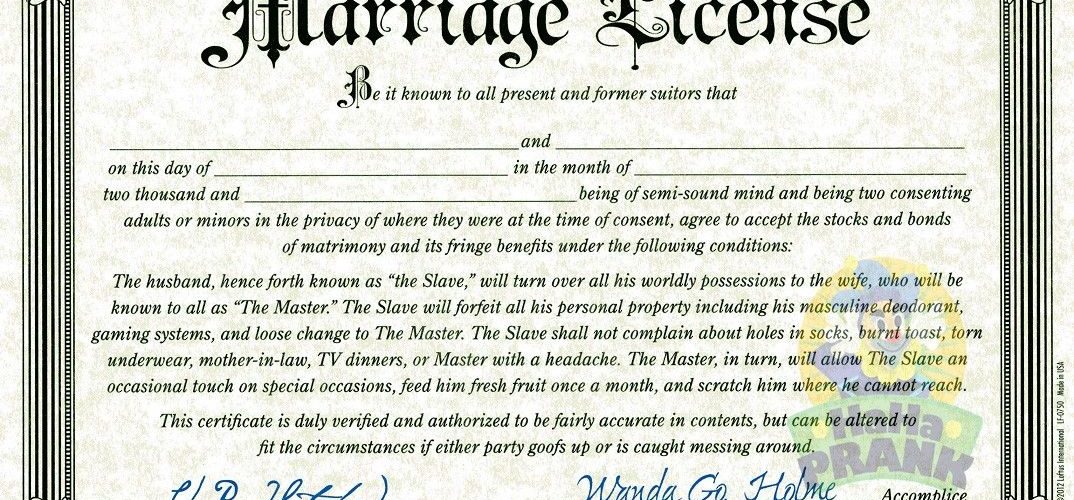 Marriage License
Be it known to all present and former suitors that
and
on this day of in the month of
two thousand and being of semi-sound mind and being two consenting
adults or minors in the privacy of where they were at the time of consent, agree to accept the stocks and bonds
of matrimony and its fringe benefits under the following conditions:
The husband, hence forth known as “the Slave,” will turn over all his worldly possessions to the wife, who will be
known to all as “The Master.” The Slave will forfeit all his personal property including his masculine deodorant,
gaming systems, and loose change to The Master. The Slave shall not complain about holes in socks, burnt toast, torn
underwear, mother-in-law, TV dinners, or Master with a headache. The Master, in turn, will allow The Slave an
occasional touch on special occasions, feed him fresh fruit once a month, and scratch him where he cannot reach.
This certificate is duly verified and authorized to be fairly accurate in contents, but can be altered to
fit the circumstances if either party goofs up or is caught messing around.
Wanda Go Holme
Accomplice
Holla
PRANK
©2012 Loftus International LF-0750 Made in USA